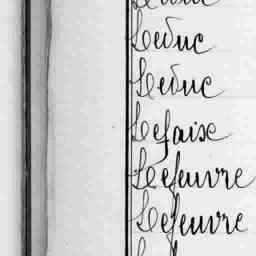 Leduc
Leduc
Lefaix
Lefeuvre
Lefeuvre